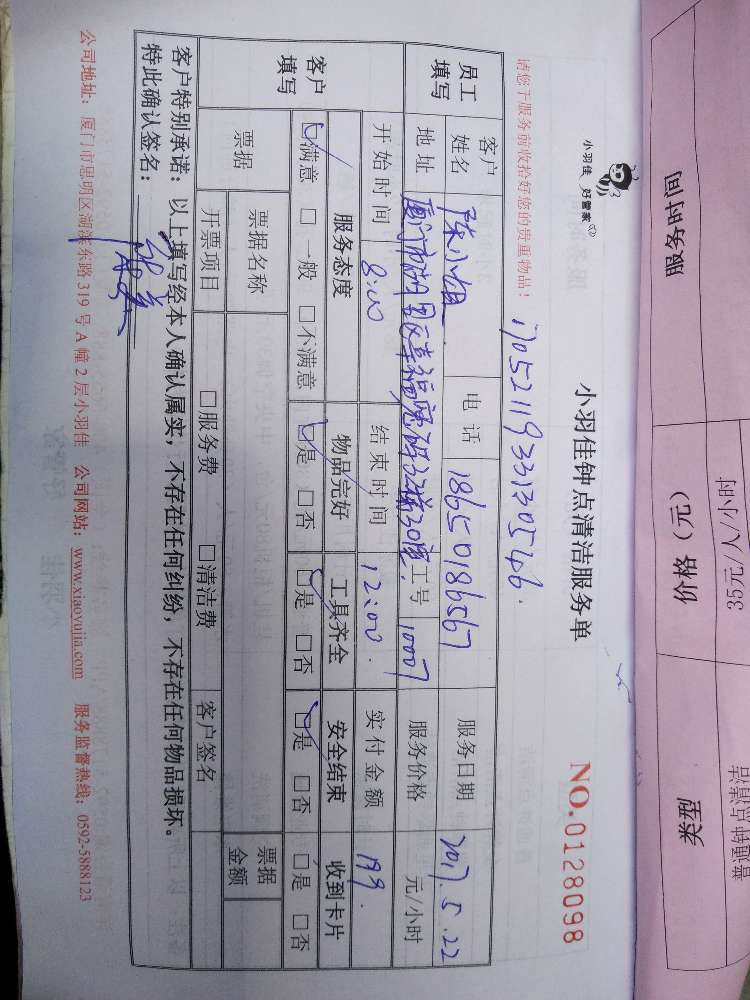 服务时间 价格（元） 类型
35元/人/小时
小羽佳 好管家
小羽佳钟点清洁服务单
NO.0128098
请您于服务前收拾好您的贵重物品！
1705211933130546.
员工填写
客户姓名 陈小姐. 电话 18650186567 服务日期 2017.5.22
地址 工号 10007 服务价格 元/小时
开始时间 8:00 结束时间 12:00. 实付金额 199.
客户填写
服务态度 物品完好 工具齐全 安全结束 收到卡片
☑满意 □一般 □不满意 ☑是 □否 ☑是 □否 ☑是 □否 □是 □否
票据 票据名称 票据金额
开票项目 □服务费 □清洁费 客户签名
客户特别承诺：以上填写经本人确认属实，不存在任何纠纷，不存在任何物品损坏。
特此确认签名：
公司地址：厦门市思明区湖滨东路319号A幢2层小羽佳 公司网站：www.xiaoyujia.com 服务监督热线：0592-5888123